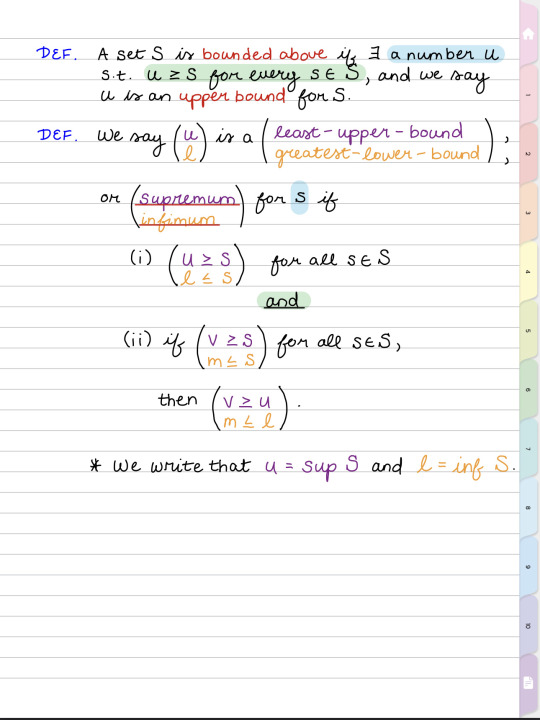 DEF. A set S is bounded above if ∃ a number u
s.t. u ≥ s for every s ∈ S, and we say
u is an upper bound for S.
DEF. We say (u) is a (least-upper-bound),
(l) (greatest-lower-bound),
or (supremum) for S if
(infimum)
(i) (u ≥ s) for all s ∈ S
(l ≤ s)
and
(ii) if (v ≥ s) for all s ∈ S,
(m ≤ s)
then (v ≥ u).
(m ≤ l)
* We write that u = sup S and l = inf S.
1
2
3
4
5
6
7
8
9
10